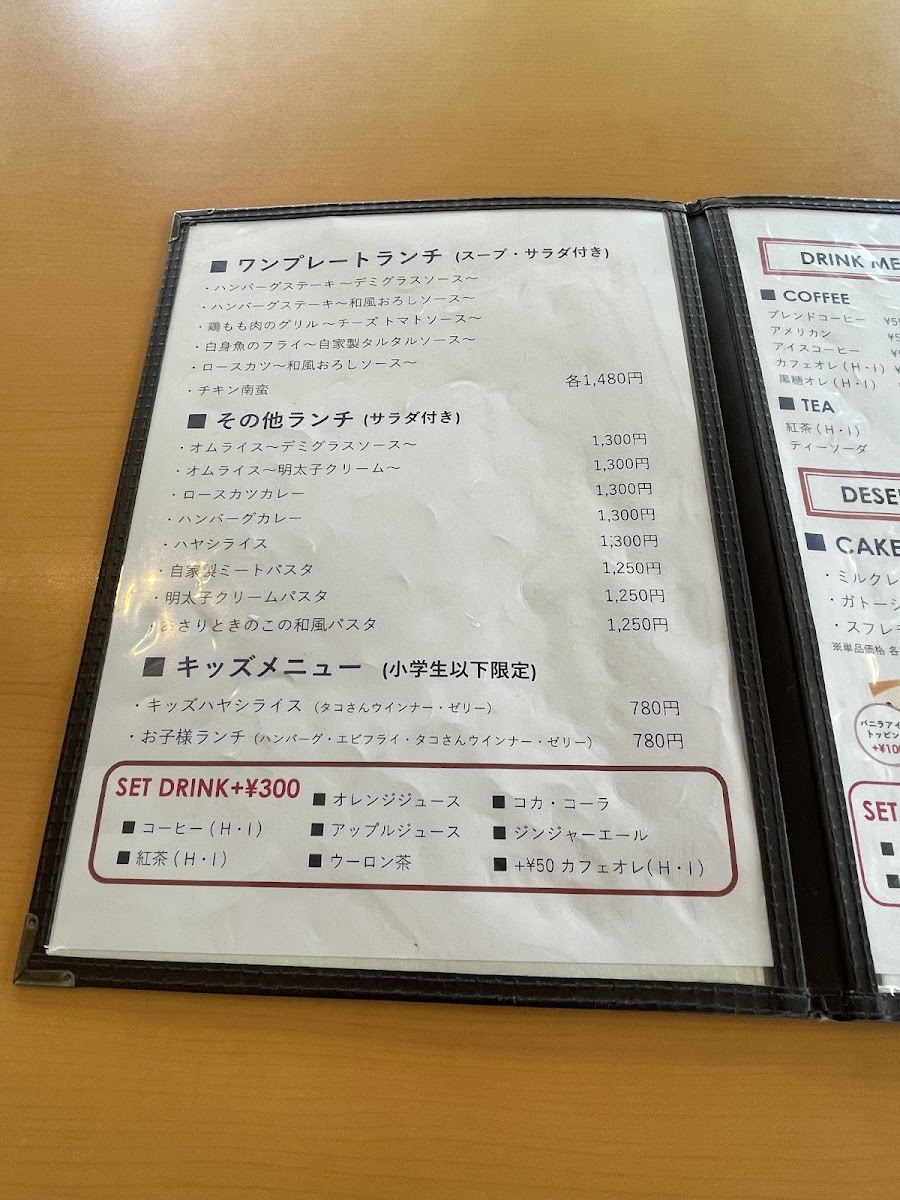 ■ ワンプレートランチ (スープ・サラダ付き)
・ハンバーグステーキ～デミグラスソース～
・ハンバーグステーキ～和風おろしソース～
・鶏もも肉のグリル～チーズトマトソース～
・白身魚のフライ～自家製タルタルソース～
・ロースカツ～和風おろしソース～
・チキン南蛮 各1,480円
■ その他ランチ (サラダ付き)
・オムライス～デミグラスソース～ 1,300円
・オムライス～明太子クリーム～ 1,300円
・ロースカツカレー 1,300円
・ハンバーグカレー 1,300円
・ハヤシライス 1,300円
・自家製ミートパスタ 1,250円
・明太子クリームパスタ 1,250円
・あさりときのこの和風パスタ 1,250円
■ キッズメニュー (小学生以下限定)
・キッズハヤシライス (タコさんウインナー・ゼリー) 780円
・お子様ランチ (ハンバーグ・エビフライ・タコさんウインナー・ゼリー) 780円
SET DRINK+¥300
■ コーヒー(H・I)
■ 紅茶(H・I)
■ オレンジジュース
■ アップルジュース
■ ウーロン茶
■ コカ・コーラ
■ ジンジャーエール
■ +¥50 カフェオレ(H・I)
DRINK ME
■ COFFEE
ブレンドコーヒー
アメリカン
アイスコーヒー
カフェオレ(H・I)
黒糖オレ(H・I)
■ TEA
紅茶(H・I)
ティーソーダ
DESE
■ CAKE
・ミルクレ
・ガトーシ
・スフレ
※単品価格 各
バニラアイ
トッピン
+¥100
SET